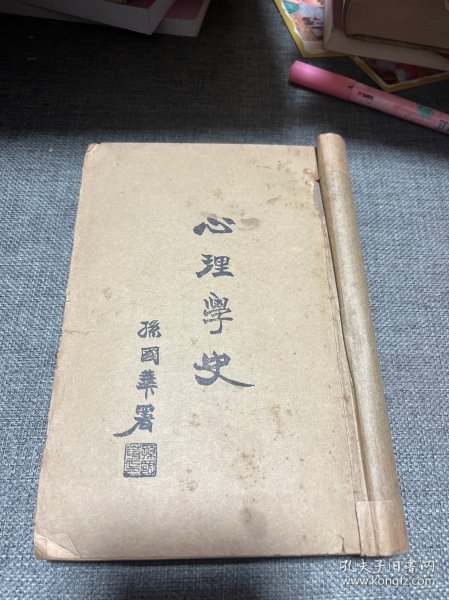 心理學史
孫國華署
孔夫子旧书网
www.kongfz.com